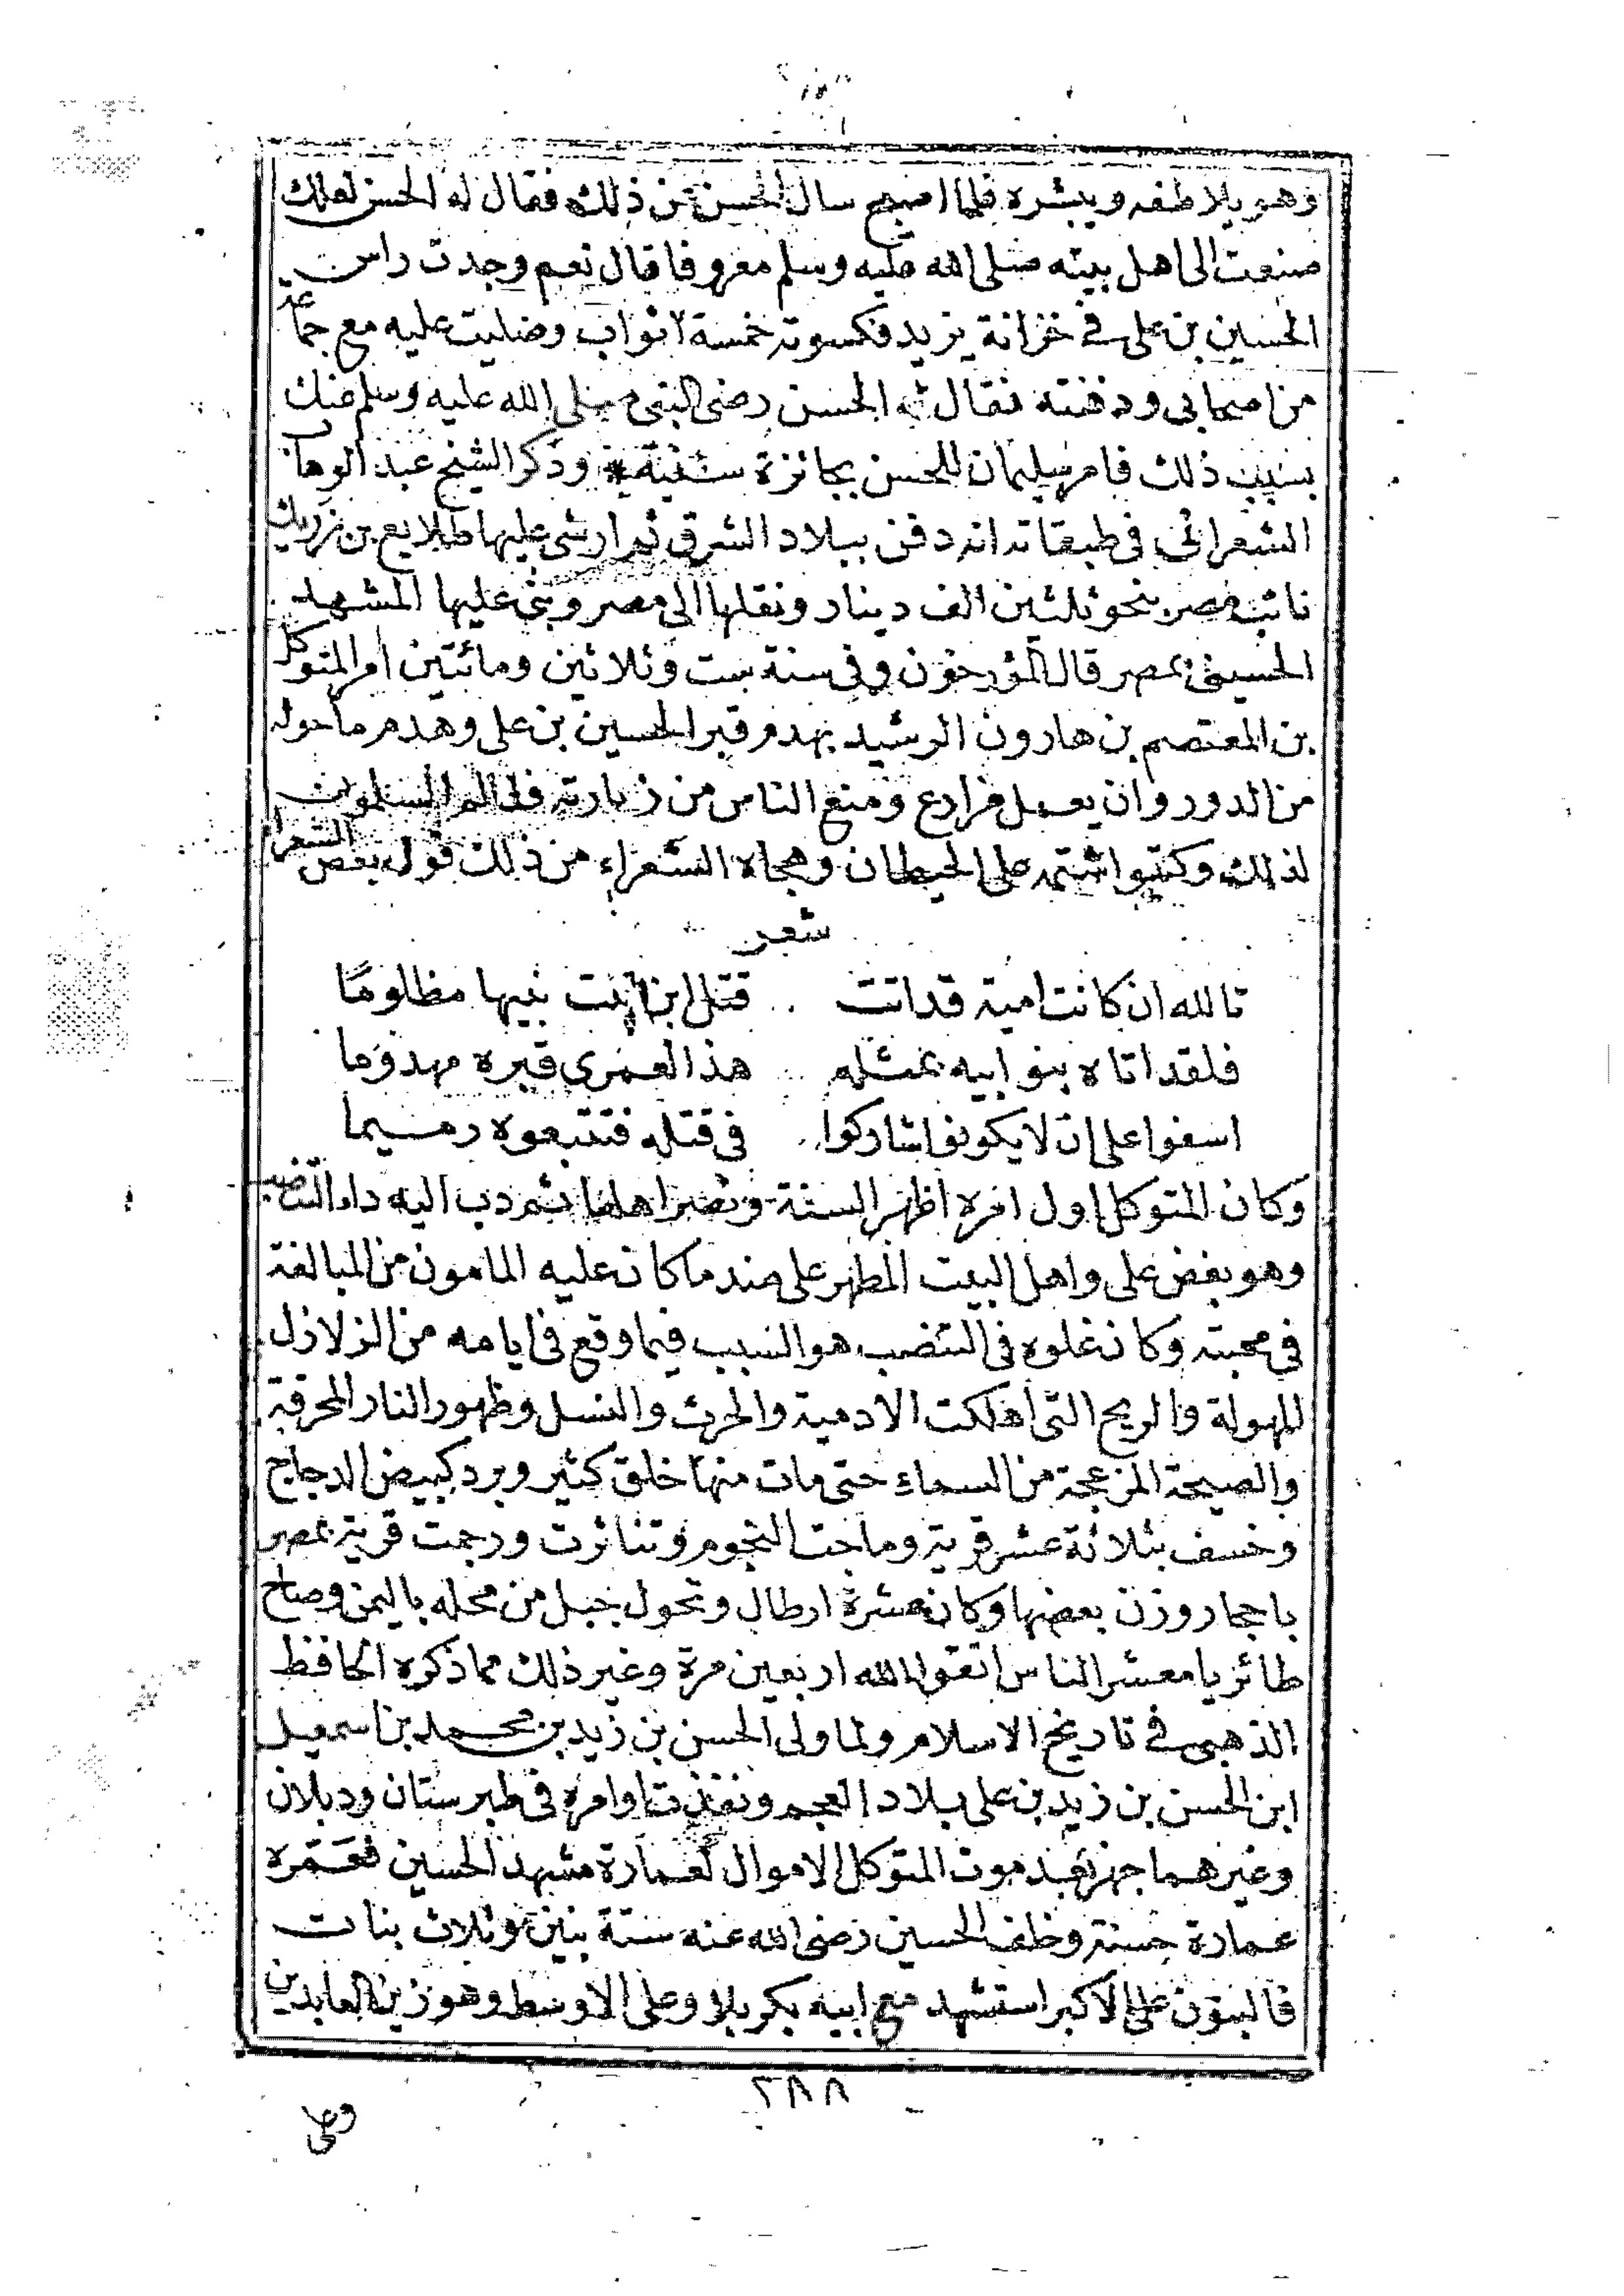 وهو يلاطفه ويبشره فلما اصبح سال الحسن عن ذلك فقال له الحسن لعلك
صنعت الى اهل بيته صلى الله عليه وسلم معروفا قال نعم وجدت راس
الحسين بن على فى خزانة يزيد فكسوته خمسة اثواب وصليت عليه مع جماعة
من اصحابى ودفنته فقال له الحسن رضى النبى صلى الله عليه وسلم عنك
بسبب ذلك فامر سليمان للحسن بجائزة سنية وذكر الشيخ عبد الوهاب
الشعرانى فى طبقاته انه دفن ببلاد الشرق ثم ارشى عليها طلايع بن زريك
نائب مصر بنحو ثلثين الف دينار ونقلها الى مصر وبنى عليها المشهد
الحسينى بمصر قال المؤرخون وفى سنة ست وثلاثين ومائتين امر المتوكل
بن المعتصم بن هارون الرشيد بهدم قبر الحسين بن على وهدم ما حوله
من الدور وان يعمل مزارع ومنع الناس من زيارته فتالم المسلمون
لذلك وكتبوا شتمه على الحيطان وهجاه الشعراء من ذلك قول بعض الشعرا
شعر
تالله ان كانت امية قد اتت .. قتل ابن بنت نبيها مظلومًا
فلقد اتاه بنو ابيه بمثله .. هذا لعمرى قبره مهدوما
اسفوا على ان لا يكونوا شاركوا .. فى قتله فتتبعوه رميما
وكان المتوكل اول امره اظهر السنة ونصر اهلها ثم دب اليه داء النصب
وهو بغض على واهل البيت المطهر على ضد ما كان عليه المامون من المبالغة
فى محبته وكان غلوه فى النصب هو السبب فيما وقع فى ايامه من الزلازل
المهولة والريح التى اهلكت الادمية والحرث والنسل وظهور النار المحرقة
والصيحة المزعجة من السماء حتى مات منها خلق كثير وبرد كبيض الدجاج
وخسف بثلاثة عشر قرية وماجت النجوم وتناثرت ورجمت قرية بمصر
باحجار وزن بعضها وكان عشرة ارطال وتحول جبل من محله باليمن وصاح
طائر يا معشر الناس اتقوا الله اربعين مرة وغير ذلك مما ذكره الحافظ
الذهبى فى تاريخ الاسلام ولما ولى الحسن بن زيد بن محمد بن اسمعيل
ابن الحسن بن زيد بن على بلاد العجم ونفذت اوامره فى طبرستان وديلان
وغيرهما جهز بعد موت المتوكل الاموال لعمارة مشهد الحسين فعَمّره
عمارة حسنة وخلف الحسين رضى الله عنه ستة بنين وثلاث بنات
فالبنون على الاكبر استشهد مع ابيه بكربلا وعلى الاوسط وهو زين العابدين
٢٨٨
وعلى